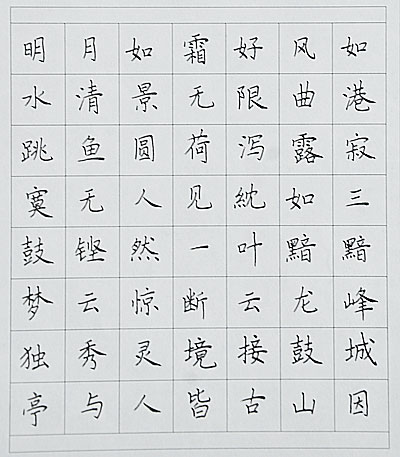 明月如霜好风如
水清景无限曲港
跳鱼圆荷泻露寂
寞无人见紞如三
鼓铿然一叶黯黯
梦云惊断云龙峰
独秀灵境接鼓城
亭与人皆古山因